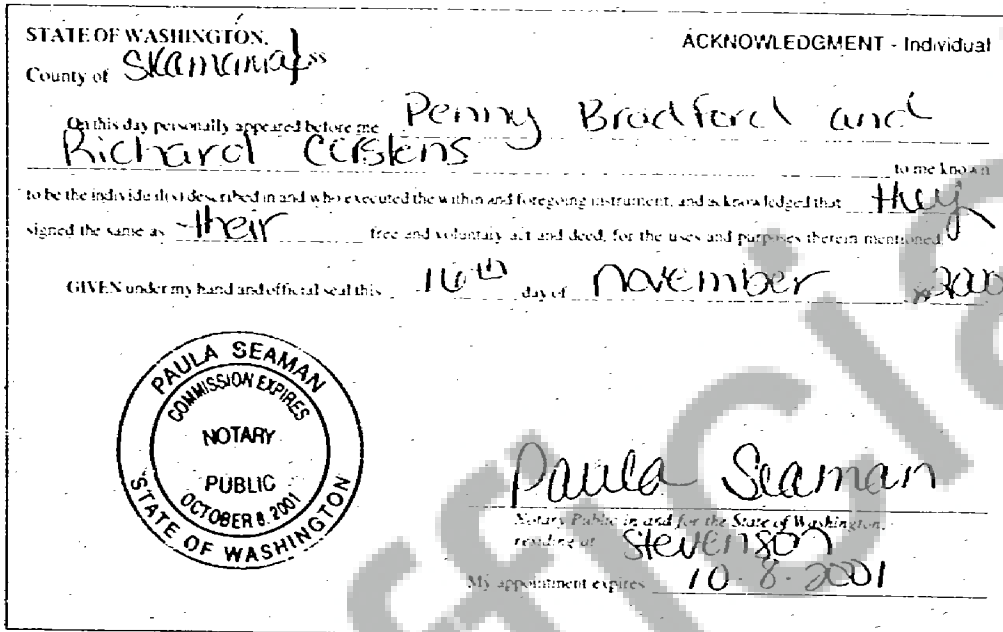 STATE OF WASHINGTON,
ACKNOWLEDGMENT - Individual
County of Skamania } ss
On this day personally appeared before me Penny Bradford and
Richard Carstens to me known
to be the individual(s) described in and who executed the within and foregoing instrument, and acknowledged that they
signed the same as their free and voluntary act and deed, for the uses and purposes therein mentioned.
GIVEN under my hand and official seal this 16th day of November 2000
PAULA SEAMAN
COMMISSION EXPIRES
NOTARY
PUBLIC
OCTOBER 8, 2001
STATE OF WASHINGTON
Paula Seaman
Notary Public in and for the State of Washington,
residing at Stevenson
My appointment expires 10-8-2001